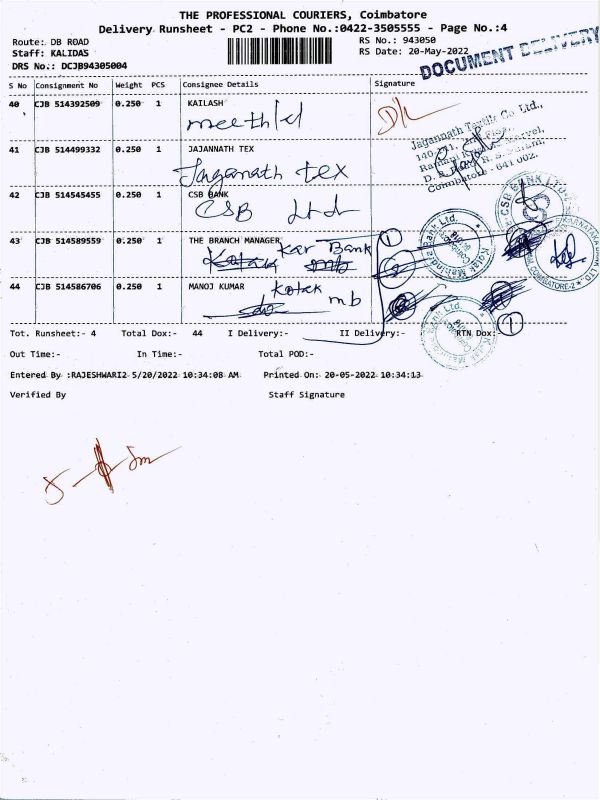 THE PROFESSIONAL COURIERS, Coimbatore
Delivery Runsheet - PC2 - Phone No.:0422-3505555 - Page No.:4
Route: DB ROAD
Staff: KALIDAS
DRS No.: DCJB94305004
RS No.: 943050
RS Date: 20-May-2022
DOCUMENT DELIVERY
S No Consignment No Weight PCS Consignee Details Signature
40 CJB 514392509 0.250 1 KAILASH
41 CJB 514499332 0.250 1 JAJANNATH TEX
Jagannath tex
Jagannath Textile Co Ltd.,
Coimbatore - 641 002.
42 CJB 514545455 0.250 1 CSB BANK
CSB Ltd
CSB BANK LTD
43 CJB 514589559 0.250 1 THE BRANCH MANAGER
Kar Bank
Kotak Mahindra Bank Ltd.
COIMBATORE-2
44 CJB 514586706 0.250 1 MANOJ KUMAR
Kotak
mb
Tot. Runsheet:- 4 Total Dox:- 44 I Delivery:- II Delivery:- RTN Dox:-
1
Out Time:- In Time:- Total POD:-
Entered By :RAJESHWARI2 5/20/2022 10:34:08 AM Printed On: 20-05-2022 10:34:13
Verified By Staff Signature